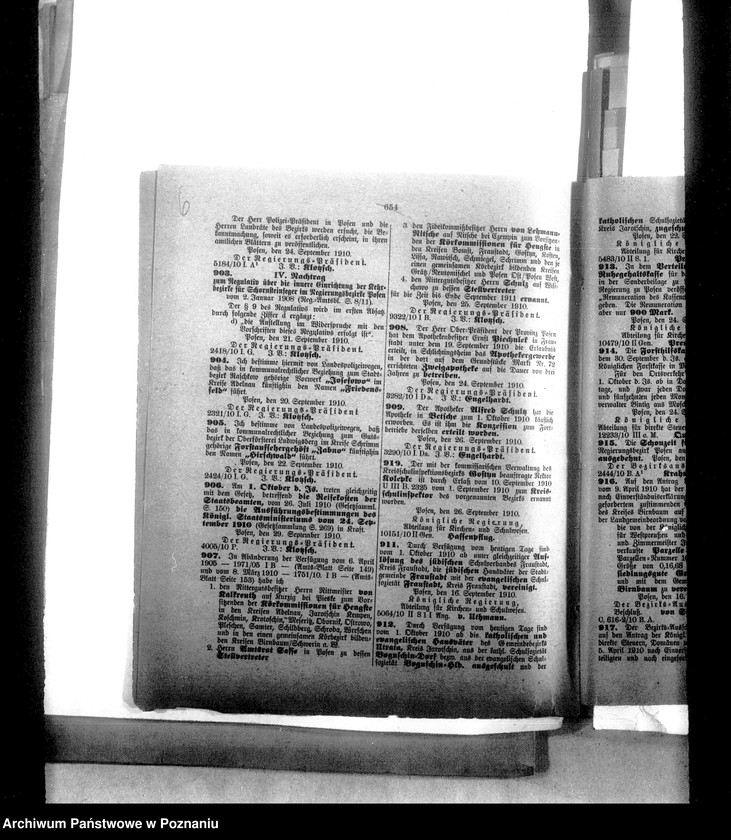 6
654
Der Herr Polizei-Präsident in Posen und die
Herren Landräte des Bezirks werden ersucht, die Be-
kanntmachung, soweit es erforderlich erscheint, in ihren
amtlichen Blättern zu veröffentlichen.
Posen, den 24. September 1910.
Der Regierungs-Präsident.
5184/10 I. A¹ J. V.: Klotzsch.
903. IV. Nachtrag
zum Regulativ über die innere Einrichtung der Kehr-
bezirke für Schornsteinfeger im Regierungsbezirke Posen
vom 2. Januar 1908 (Reg.-Amtsbl. S. 8/11).
Der § 9 des Regulativs wird im ersten Absatz
durch folgende Ziffer d ergänzt:
d) „die Anstellung im Widerspruche mit den
Vorschriften dieses Regulativs erfolgt ist“.
Posen, den 21. September 1910.
Der Regierungs-Präsident.
2418/10 I. G. J. V.: Klotzsch.
904. Ich bestimme hiermit von Landespolizeiwegen,
daß das in kommunalrechtlicher Beziehung zum Stadt-
bezirk Raschkow gehörige Vorwerk „Josefowo“ im
Kreise Adelnau künftighin den Namen „Friedens-
feld“ führt.
Posen, den 20. September 1910.
Der Regierungs-Präsident
2321/10 I. G. J. V.: Klotzsch.
905. Ich bestimme von Landespolizeiwegen, daß
das in kommunalrechtlicher Beziehung zum Guts-
bezirk der Oberförsterei Ludwigsberg im Kreise Schrimm
gehörige Forstaufsehergehöft „Jabno“ künftighin
den Namen „Hirschwald“ führt.
Posen, den 22. September 1910.
Der Regierungs-Präsident.
2424/10 I. G. J. V.: Klotzsch.
906. Am 1. Oktober d. Js. treten gleichzeitig
mit dem Gesetz, betreffend die Reisekosten der
Staatsbeamten, vom 26. Juli 1910 (Gesetzsamml.
S. 150) die Ausführungsbestimmungen des
Königl. Staatsministeriums vom 24. Sep-
tember 1910 (Gesetzsammlung S. 269) in Kraft.
Posen, den 29. September 1910.
Der Regierungs-Präsident.
4005/10 P. J. V.: Klotzsch.
907. In Abänderung der Verfügung vom 6. April
1905 — 1971/05 I B — (Amts-Blatt Seite 149)
und vom 8. März 1910 — 1751/10. I B — (Amts-
Blatt Seite 153) habe ich
1. den Rittergutsbesitzer Herrn Rittmeister von
Kalkreuth auf Kurzig bei Pieske zum Vor-
sitzenden der Körkommissionen für Hengste
in den Kreisen Adelnau, Jarotschin, Kempen,
Koschmin, Krotoschin, Meseritz, Obornik, Ostrowo,
Pleschen, Samter, Schildberg, Schroda, Wreschen
und in den einen gemeinsamen Körbezirk bilden-
den Kreisen Birnbaum/Schwerin a. W.
2. Herrn Amtsrat Sasse in Posen zu dessen
Stellvertreter
3. den Fideikommißbesitzer Herrn von Lehmann-
Nitsche auf Nitsche bei Czempin zum Vorsitzen-
den der Körkommissionen für Hengste in
den Kreisen Bomst, Fraustadt, Gostyn, Kosten,
Lissa, Rawitsch, Schmiegel, Schrimm und den je
einen gemeinsamen Körbezirk bildenden Kreisen
Grätz/Neutomischel und Posen Ost/Posen West,
4. den Rittergutsbesitzer Herrn Schulz auf Wil-
schowo zu dessen Stellvertreter
für die Zeit bis Ende September 1911 ernannt.
Posen, den 25. September 1910.
Der Regierungs-Präsident.
9322/10 I B. J. V.: Klotzsch.
908. Der Herr Ober-Präsident der Provinz Posen
hat dem Apothekenbesitzer Ernst Piechniek in Frau-
stadt unter dem 19. September 1910 die Erlaubnis
erteilt, in Schlichtingsheim das Apothekergewerbe
in der dort auf dem Grundstücke Markt Nr. 72
errichteten Zweigapotheke auf die Dauer von drei
Jahren zu betreiben.
Posen, den 24. September 1910.
Der Regierungs-Präsident.
3282/10 I Da. J. V.: Engelhardt.
909. Der Apotheker Alfred Schulz hat die
Apotheke in Betsche zum 1. Oktober 1910 käuflich
erworben. Es ist ihm die Konzession zum Fort-
betriebe derselben erteilt worden.
Posen, den 26. September 1910.
Der Regierungs-Präsident.
3290/10 I. Da. J. V.: Engelhardt.
919. Der mit der kommissarischen Verwaltung des
Kreisschulinspektionsbezirks Gostyn beauftragte Rektor
Kolepke ist durch Erlaß vom 10. September 1910
U III B. 2325 vom 1. September 1910 zum Kreis-
schulinspektor des vorgenannten Bezirks ernannt
worden.
Posen, den 26. September 1910.
Königliche Regierung,
Abteilung für Kirchen- und Schulwesen.
10151/10 II Gen. Hassenpflug.
911. Durch Verfügung vom heutigen Tage sind
vom 1. Oktober 1910 ab unter gleichzeitiger Auf-
lösung des jüdischen Schulverbandes Fraustadt,
Kreis Fraustadt, die jüdischen Hausväter der Stadt-
gemeinde Fraustadt mit der evangelischen Schul-
sozietät Fraustadt, Kreis Fraustadt, vereinigt.
Posen, den 16. September 1910.
Königliche Regierung,
Abteilung für Kirchen- und Schulwesen.
5064/10 II 8 I Ang. v. Uthmann.
912. Durch Verfügung vom heutigen Tage sind
vom 1. Oktober 1910 ab die katholischen und
evangelischen Hausväter des Gemeindebezirks
Utrata, Kreis Jarotschin, aus der kathol. Schulsozietät
Boguschin-Dorf bezw. aus der evangelischen Schul-
sozietät Boguschin-Hld. ausgeschult und der
katholischen Schulsozietät
Kreis Jarotschin, zugeschul
Posen, den 22. S
Königliche
Abteilung für Kirche
5483/10 II 8. I.
913. In dem Verteilu
Ruhegehaltskasse für d
in der Sonderbeilage zu
Regierung zu Posen veröffe
„Remuneration des Kassen
geben. Die Remuneration
aber nur 900 Mark.
Posen, den 24. S
Königliche
Abteilung für Kirche
10479/10 II Gen.
914. Die Forsthilfska
dem 30. September d. Js. a
Königlichen Forstkasse in M
Für den Ortsver
1. Oktober d. Js. ab in Da
tage, und zwar jeden Do
und fünfzehnten jeden Mon
verwalter Biking aus Mosch
Posen, den 24.
Königliche
Abteilung für direkte Steue
12233/10 III o. M.
915. Die Schonzeit f
Regierungsbezirk Posen
ausgedehnt. Posen, den
Der Bezirksau
2444/10 E. A¹ Krahm
916. Auf den Antrag
vom 9. April 1910 hat der
nach Einverständniserklärung
geforderten zustimmenden
des Kreises Birnbaum auf
der Landgemeindeordnung vo
die von der
für Westpreußen und
und Zimmermeister
verkaufte Parzelle
Parzellen-Nummer
Größe von 0,16,68
siedlungsgute Gr
und mit dem Gem
Birnbaum zu verei
Posen, den 16.
Der Bezirks-Aus
Beschluß. von
C. 616-2/10 B. A.
917. Der Bezirks-Aussch
auf den Antrag der Königl.
direkte Steuern, Domänen
5. April 1910 nach Einver
teiligten und nach eingefor
Archiwum Państwowe w Poznaniu